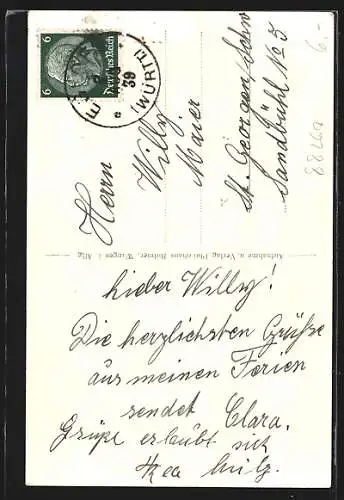 6 Deutsches Reich 6
(WÜRTT)
39
e
Herrn
Willy
Maier
St. Georgen/Schw
Sandbühl No 5
6.-
Aufnahme u. Verlag Photohaus Wangen i. Allg
Lieber Willy!
Die herzlichsten Grüße
aus meinen Ferien
sendet Clara.
Grüße erlaubt sich